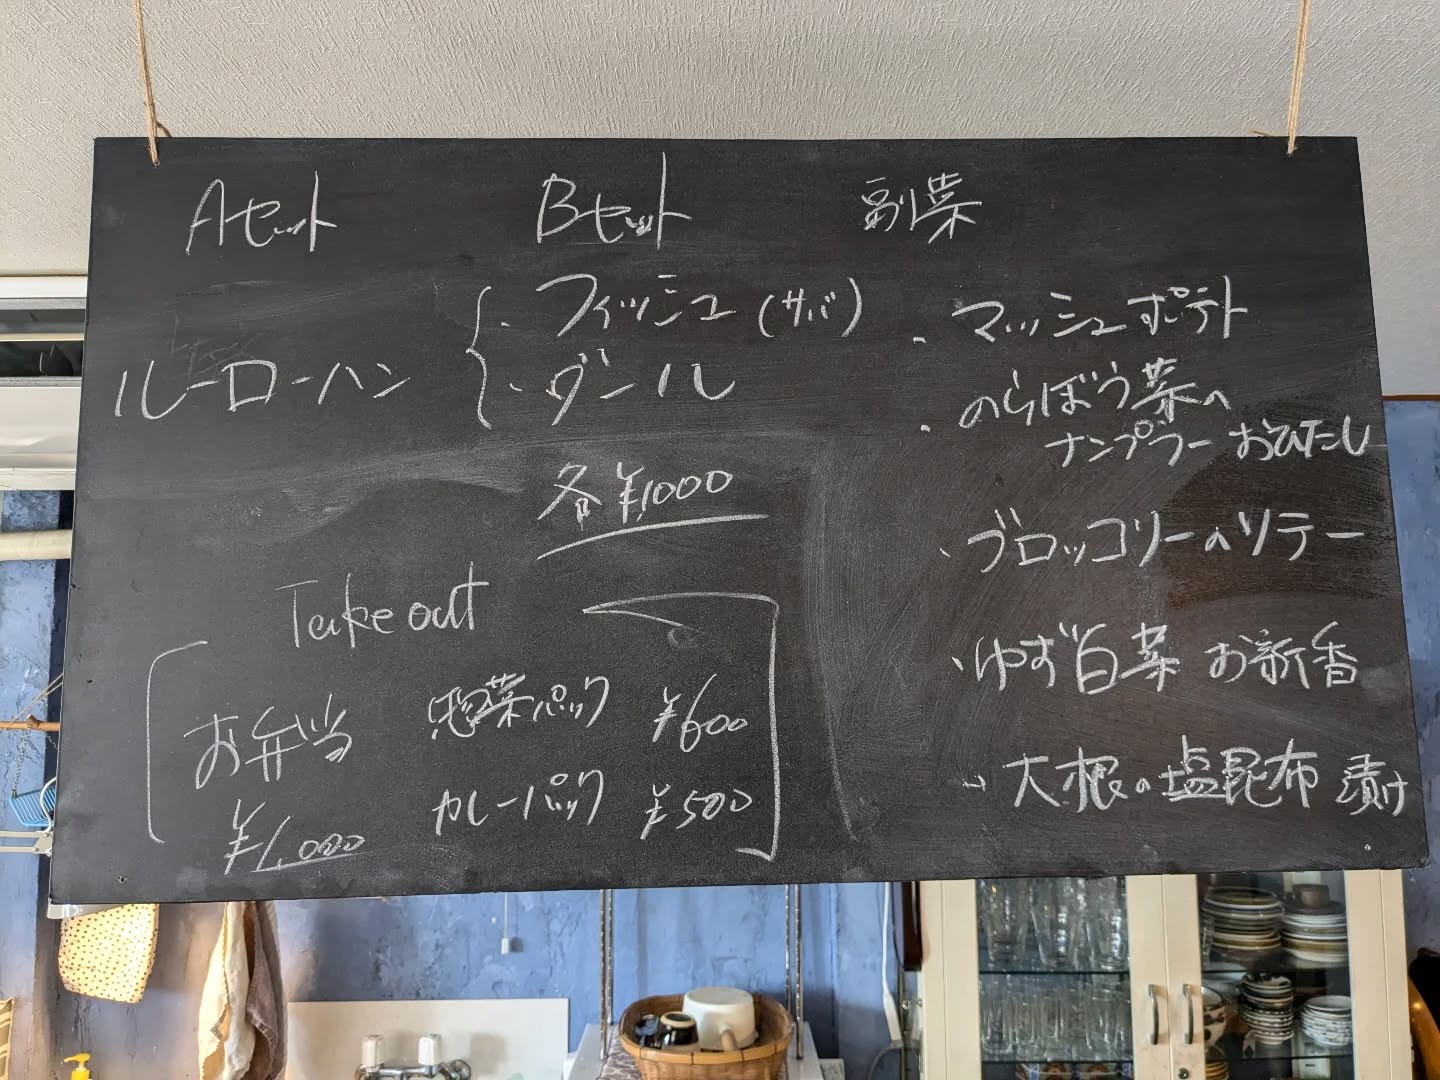 Aセット
ルーローハン
Bセット
・フィッシュ(サバ)
・ダール
各¥1,000
副菜
・マッシュポテト
・のらぼう菜の
ナンプラーおひたし
・ブロッコリーのソテー
・ゆず白菜 お新香
・大根の塩昆布漬け
Take out
お弁当
¥1,000
惣菜パック ¥600
カレーパック ¥500